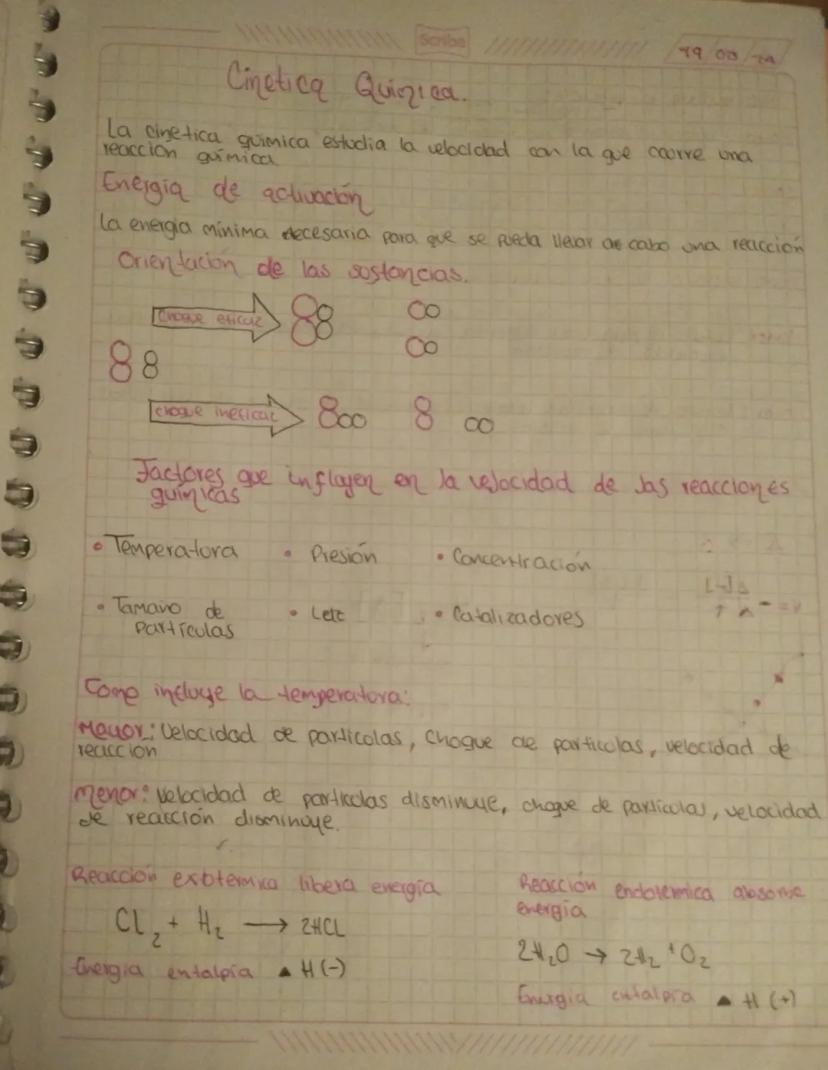 Scribe
Cinetica Quimica.
La cinetica quimica estudia la velocidad con la que ocurre una
reaccion quimica
Energia de activación
La energia mínima necesaria para que se pueda llevar a cabo una reaccion
Orientacion de las sostancias.
choque eficaz
choque ineficaz
Factores que influyen en la velocidad de las reacciones
quimicas
• Temperatura • Presión • Concentración
• Tamaño de • • Catalizadores
particulas
Como incluye la temperatura:
Mayor: Velocidad de particulas, choque de particulas, velocidad de
reaccion
Menor: velocidad de particulas disminuye, choque de particulas, velocidad
de reacción disminuye.
Reacción exotermica libera energia
Reacción endotermica absorve
energia
Cl₂ + H₂ → 2HCL
2H₂O → 2H₂ + O₂
Energia entalpia ▲ H (-)
Energia entalpia ▲ H (+)